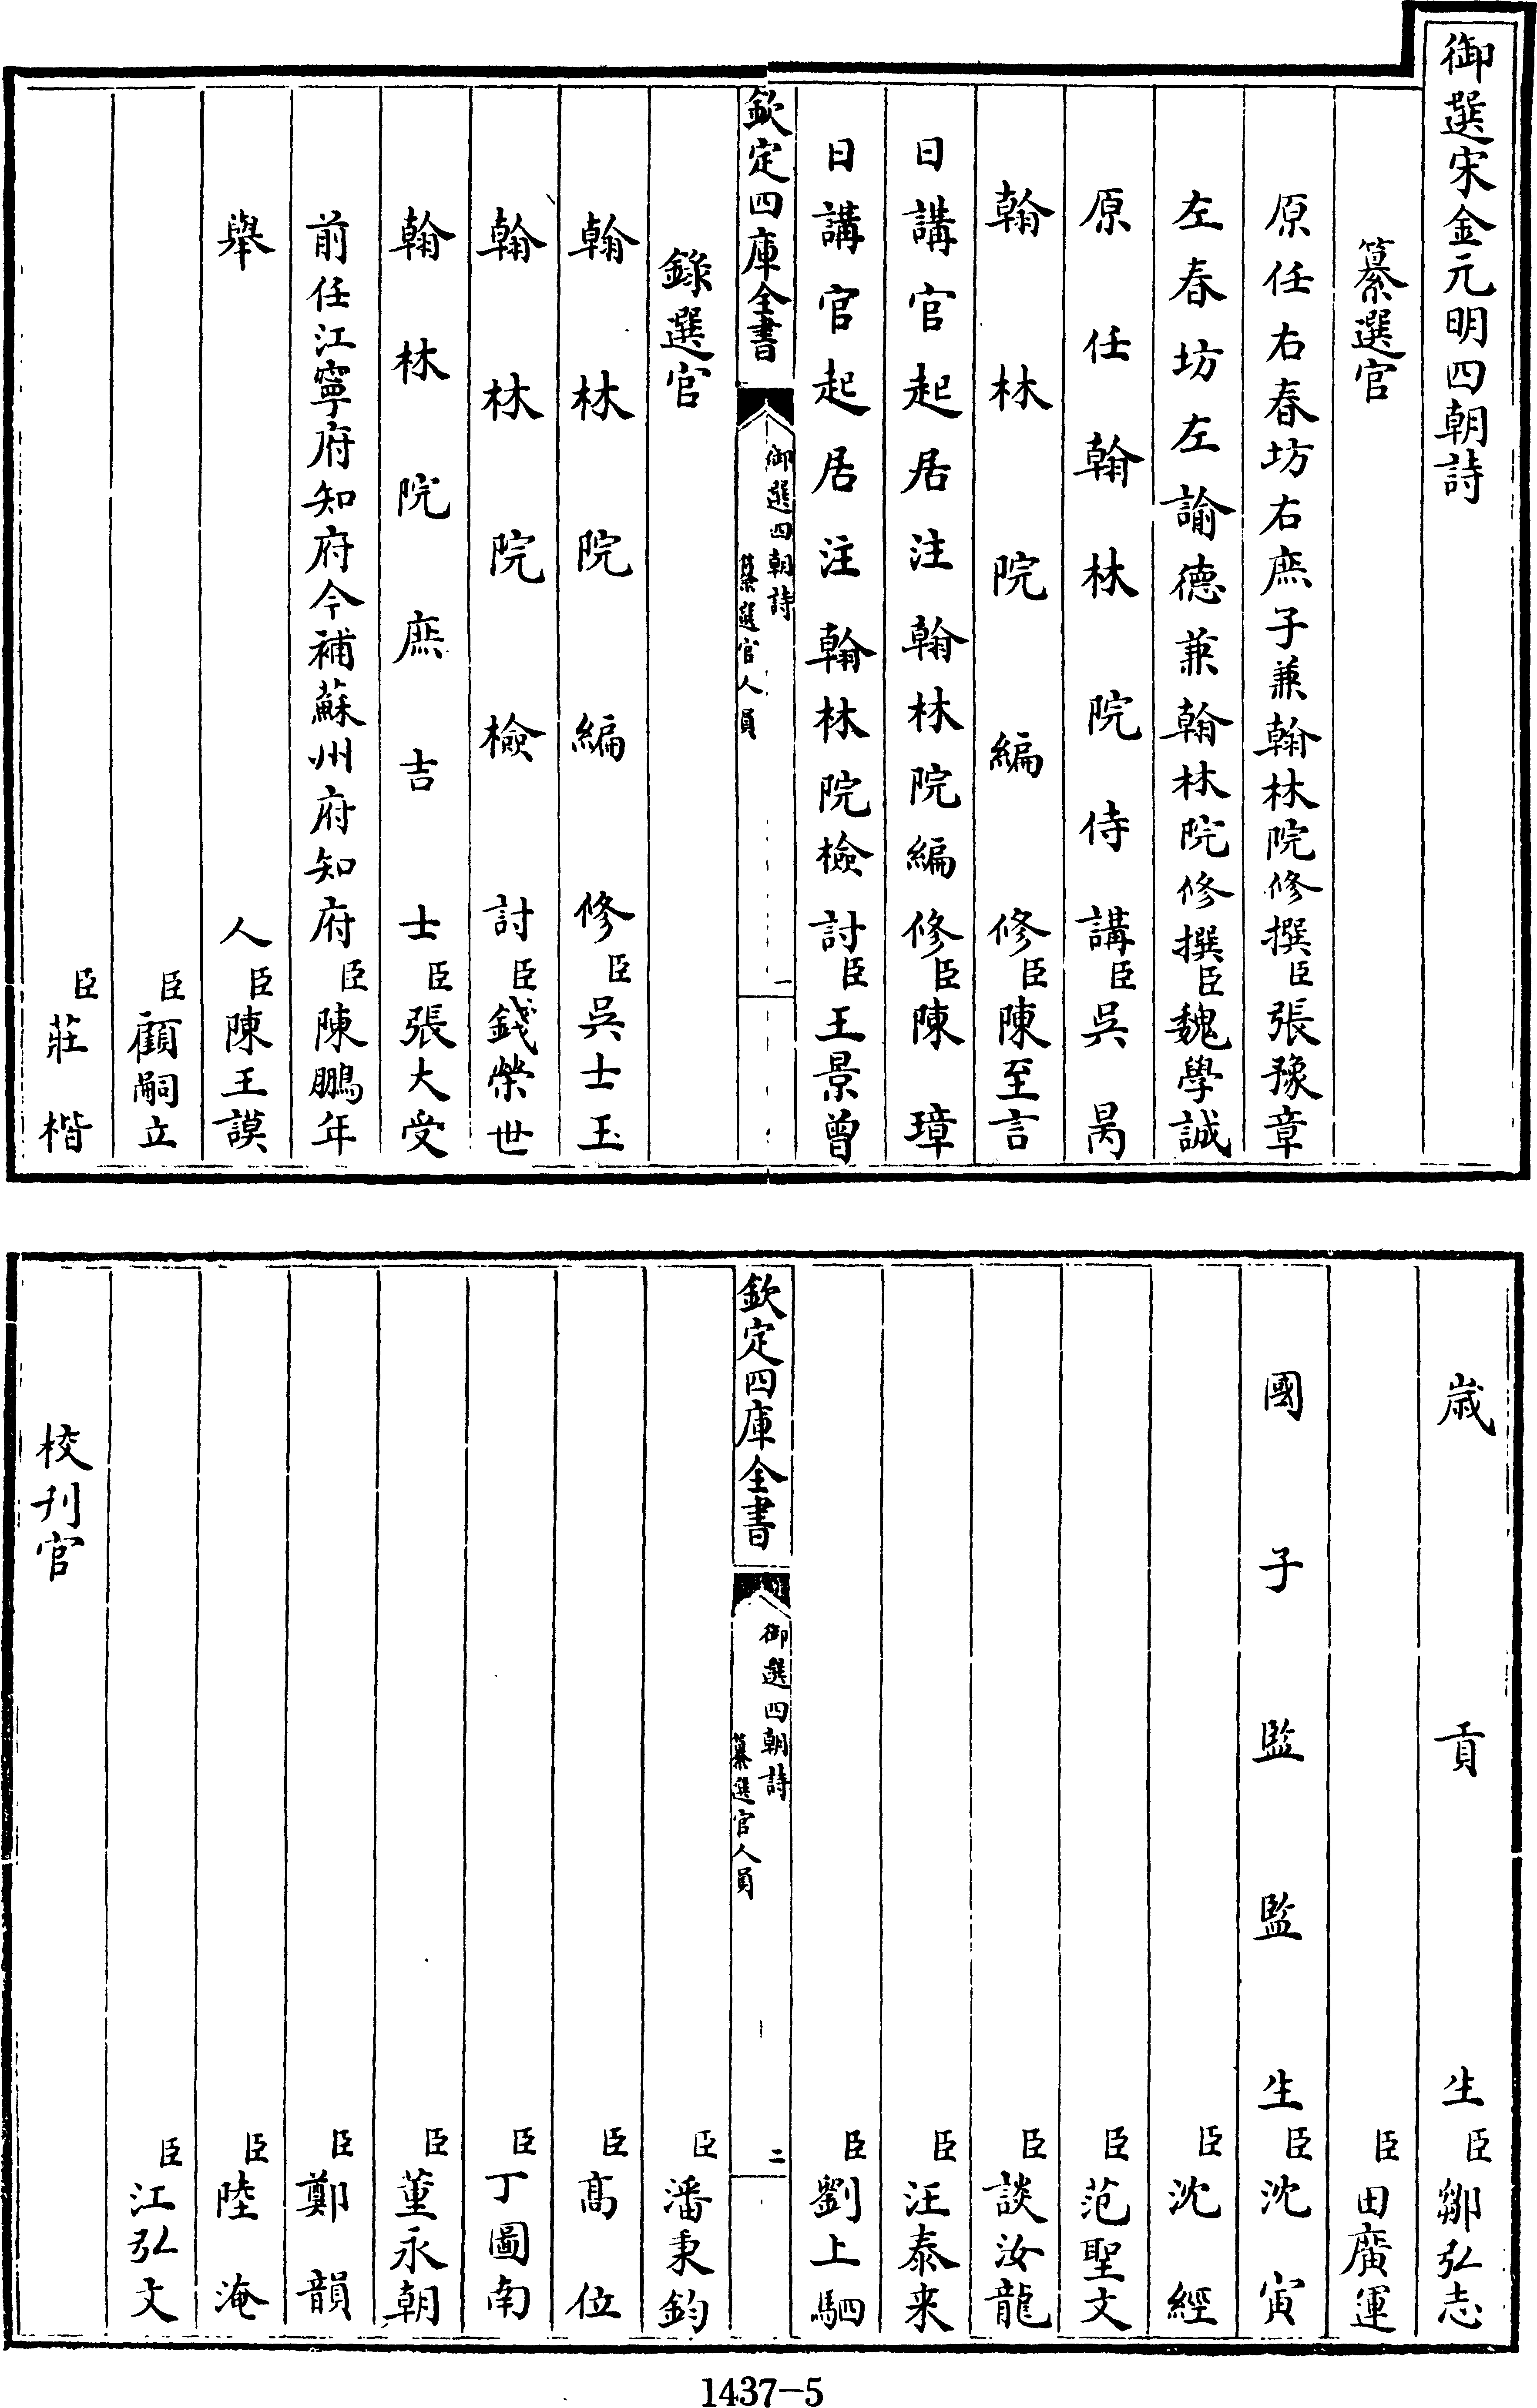 御選宋金元明四朝詩
纂選官
原任右春坊右庶子兼翰林院修撰臣張豫章
左春坊左諭德兼翰林院修撰臣魏學誠
原任翰林院侍講臣吳昺
翰林院編修臣陳至言
日講官起居注翰林院編修臣陳璋
日講官起居注翰林院檢討臣王景曾
欽定四庫全書
御選四朝詩
纂選官人員
一
錄選官
翰林院編修臣吳士玉
翰林院檢討臣錢榮世
翰林院庶吉士臣張大受
前任江寧府知府今補蘇州府知府臣陳鵬年
舉人臣陳王謨
臣顧嗣立
臣莊楷
歲貢生臣鄒弘志
臣田廣運
國子監監生臣沈寅
臣沈經
臣范聖文
臣談汝龍
臣汪泰来
臣劉上駟
欽定四庫全書
御選四朝詩
纂選官人員
二
臣潘秉鈞
臣高位
臣丁圖南
臣董永朝
臣鄭韻
臣陸淹
臣江弘文
校刊官
1437-5